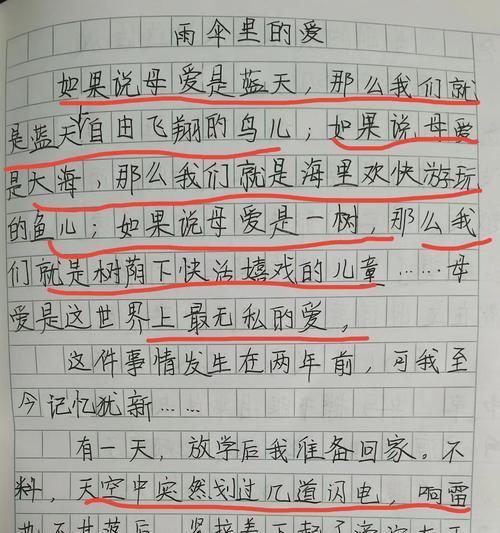 雨伞里的爱
如果说母爱是蓝天，那么我们就
是蓝天自由飞翔的鸟儿；如果说母爱
是大海，那么我们就是海里欢快游玩
的鱼儿；如果说母爱是一树，那么我
们就是树荫下快活嬉戏的儿童……母
爱是这世界上最无私的爱。
这件事情发生在两年前，可我至
今记忆犹新……
有一天，放学后我准备回家。不
料，天空中突然划过几道闪电，响雷
也不甘落后，紧接着下起了滂沱大雨